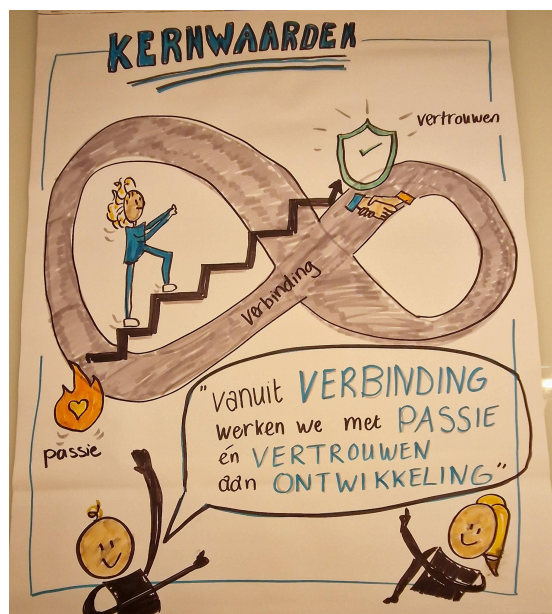 KERNWAARDEN
vertrouwen
verbinding
passie
"vanuit VERBINDING
werken we met PASSIE
én VERTROUWEN
aan ONTWIKKELING"